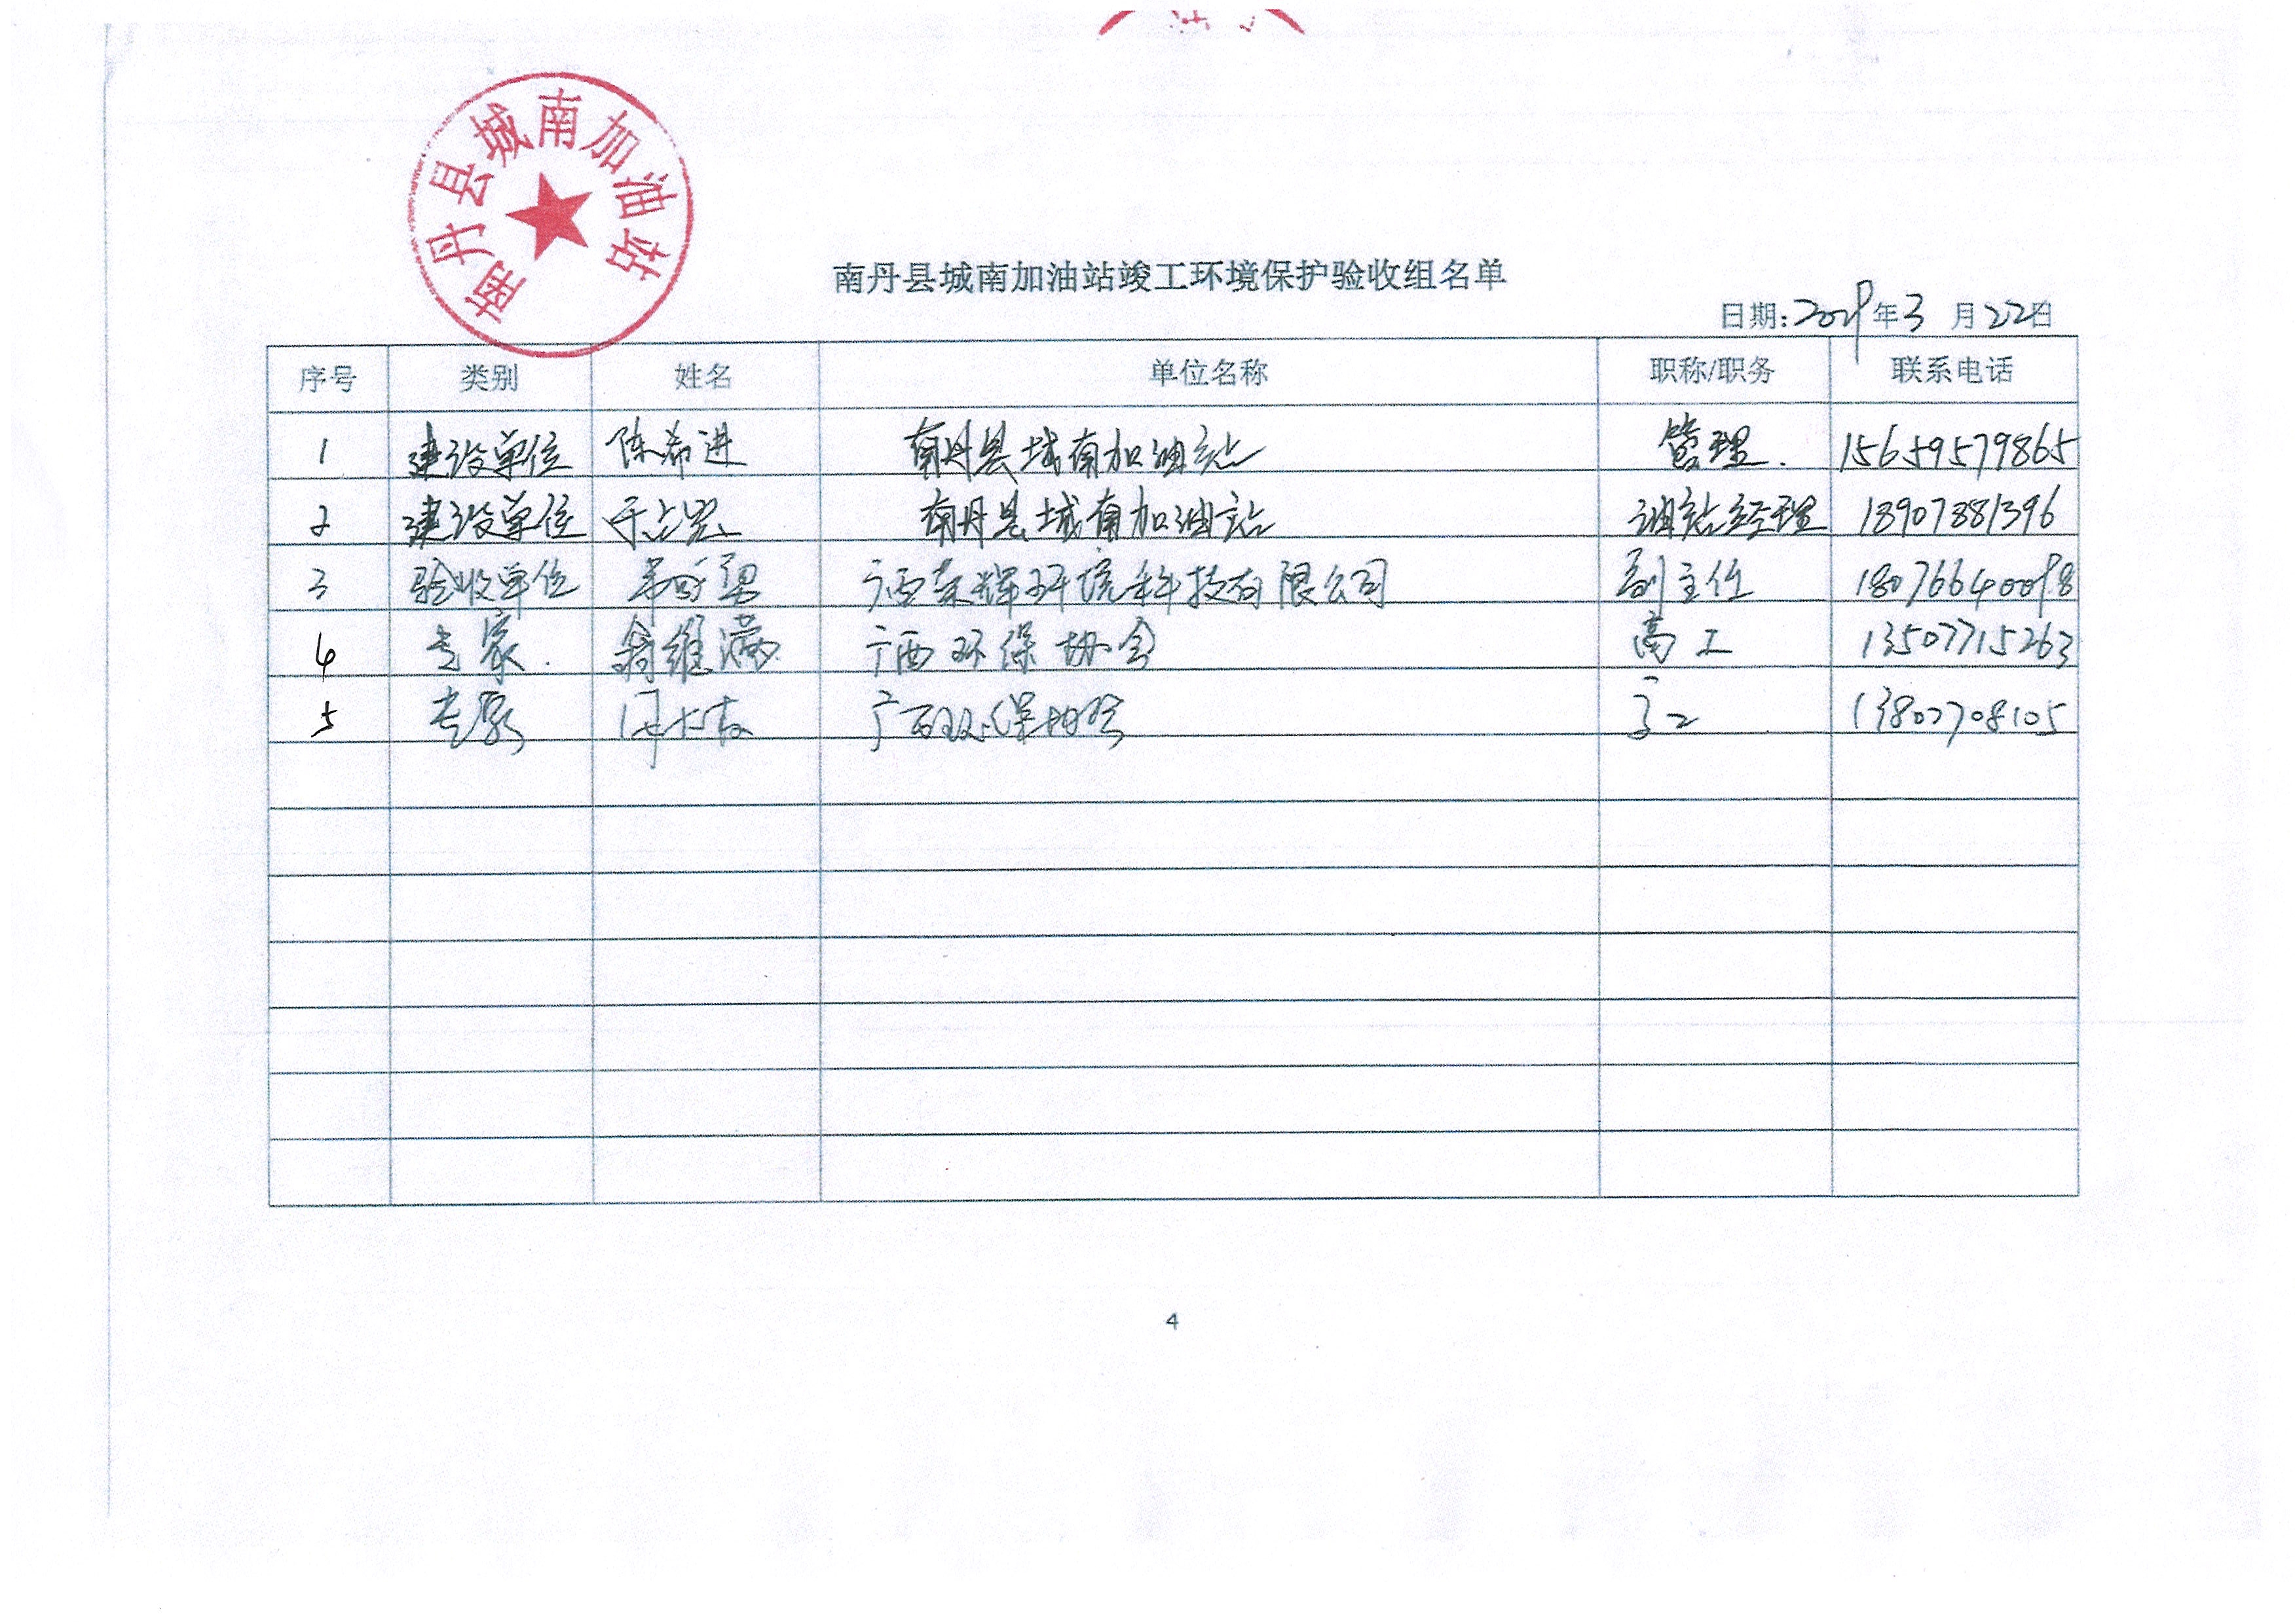 南丹县城南加油站
南丹县城南加油站竣工环境保护验收组名单
日期:2019年3月22日
序号 类别 姓名 单位名称 职称/职务 联系电话
1 建设单位 陈希进 南丹县城南加油站 管理. 15659579865
2 建设单位 南丹县城南加油站 油站经理 18907881396
3 验收单位 广西荣辉环境科技有限公司 副主任 18076640098
4 专家. 翁维满 广西环保协会 高工 13507715263
5 专家 广西环保协会 高工 13807708105
4